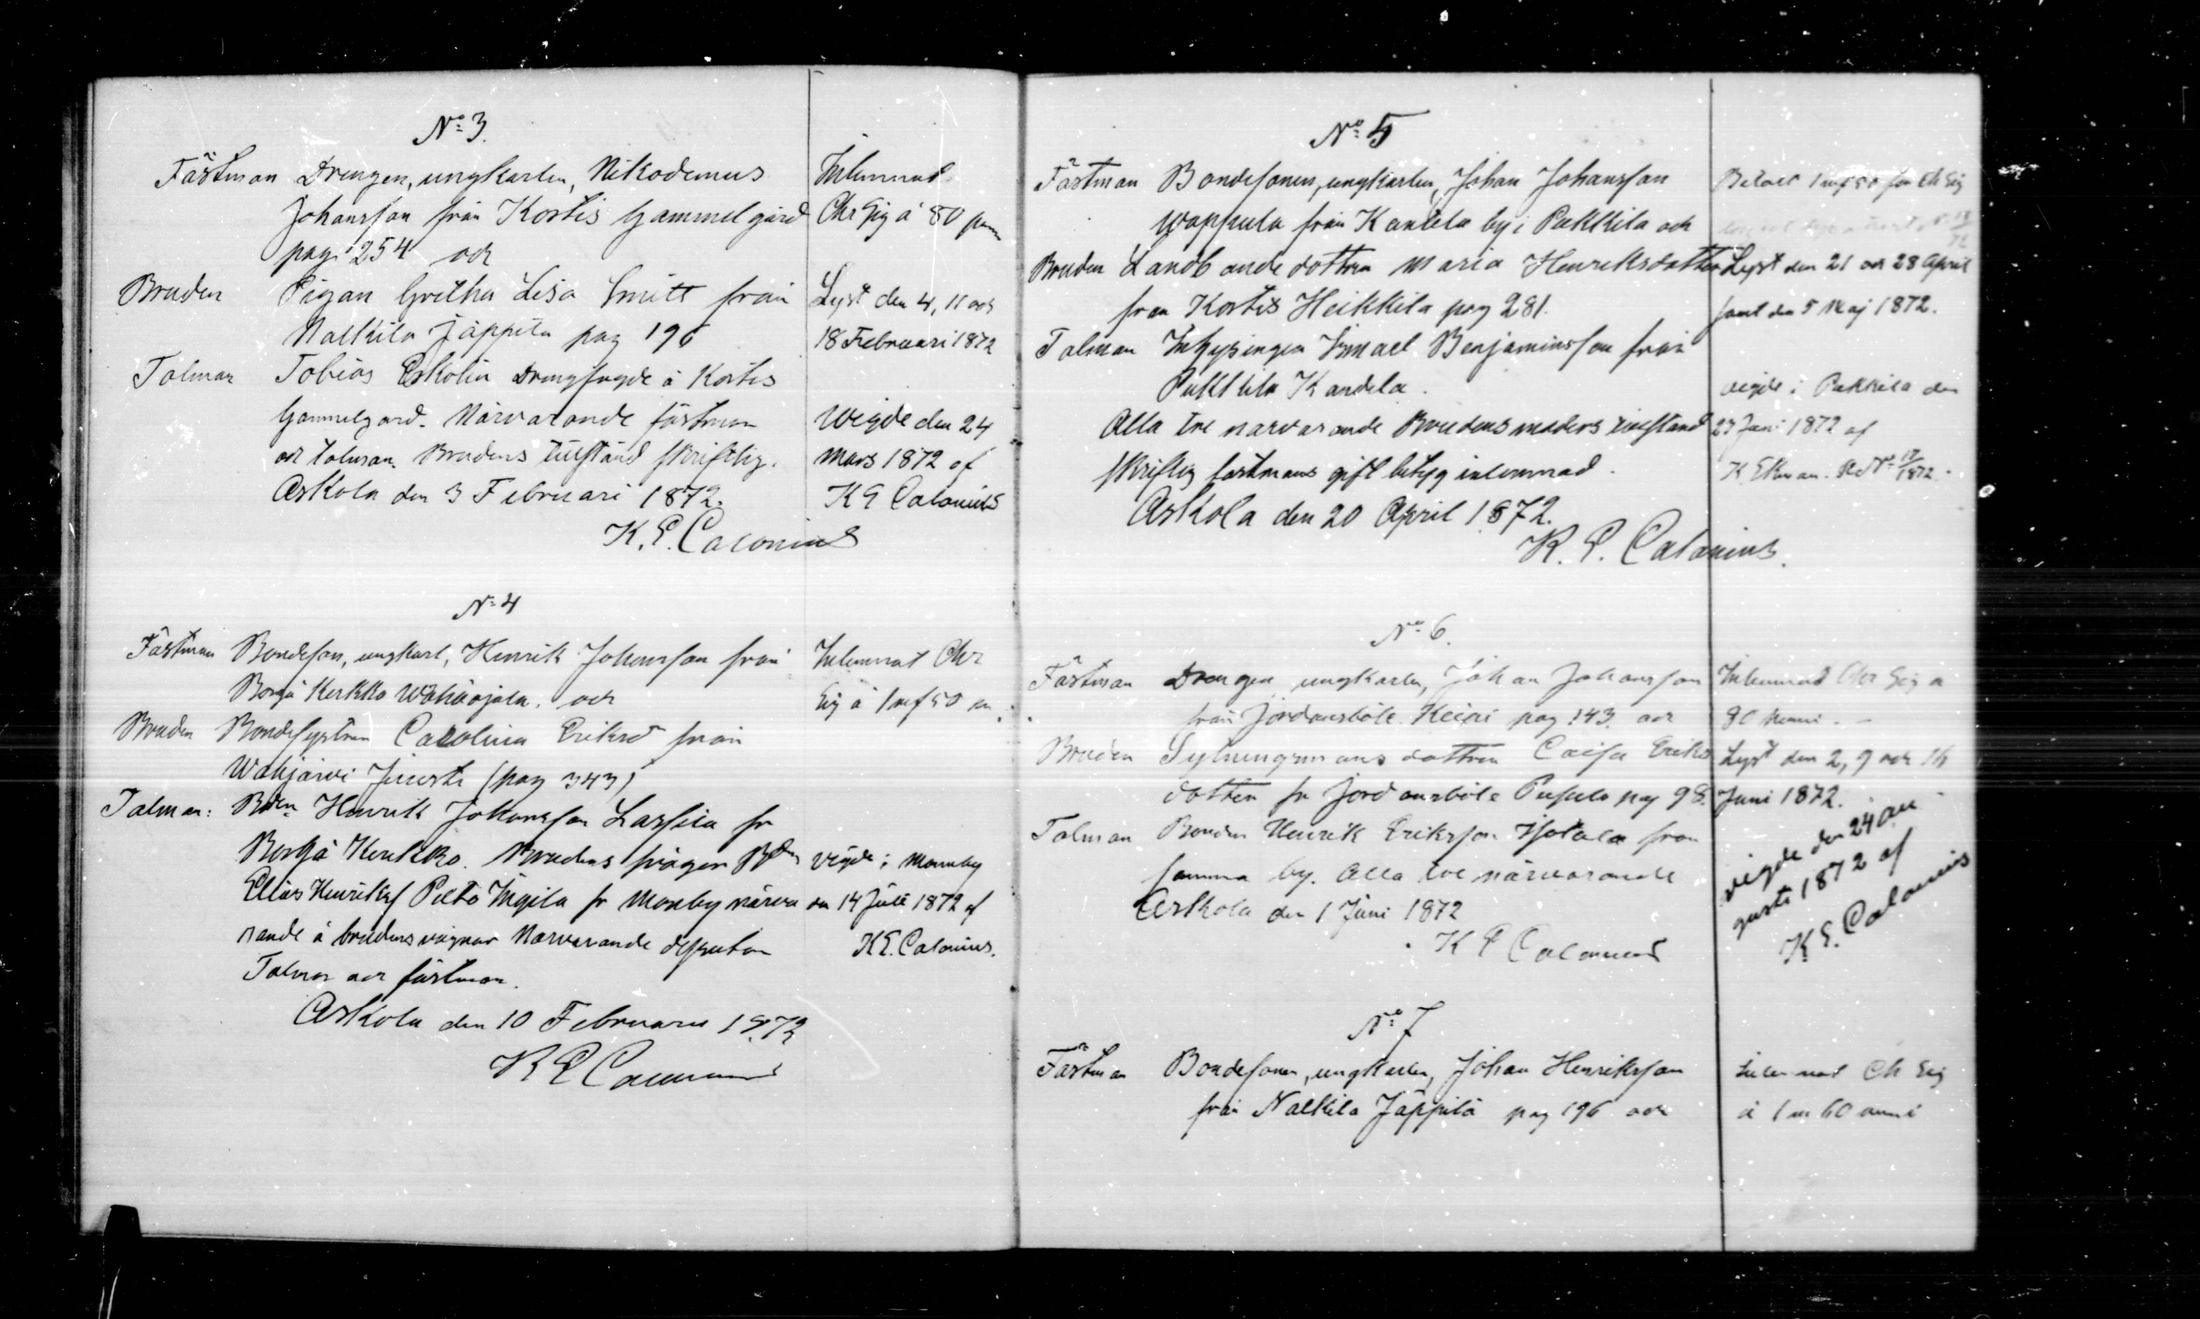 No 3.
Fästman Drengen, ungkarlen, Nikodemus
Johansson från Kortis Gammelgård
pag 254 och
Bruden Pigan Gretha Lisa Smitt från
Nalkila Jäppilä pag 196
Talman Tobias Eskolin Drengfogde å Kortis
Gammelgård. Närvarande fästman
och talman. Brudens tillstånd skriftlig.
Askola den 3 Februari 1872.
K. E. Calonius
Inlemnat
Chr Sig á 80 penni
Lyst den 4, 11 och
18 Februari 1872
Wigde den 24
Mars 1872 af
K E Calonius
No 4
Fästman Bondeson, ungkarl, Henrik Johansson från
Borgå Kerkko Wähäojala, och
Bruden Bondesystren Carolina Eriksd från
Wahijärvi Juusti (pag 343)
Talman: Bden Henrik Johansson Lassila fr
Borgå Kerkko. Brudens svåger Bden
Elias Henrikss Pietilä Ingila fr Monby närva
rande å brudens vägnar Närvarande dessutom
Talman och fästman.
Askola den 10 Februari 1872
K E Calonius
Inlemnat Chr
Sig á 1 mf 50 p
vigde i Monnby
den 14 Juli 1872 af
K E. Calonius.
No 5
Fästman Bondesonen, ungkarlen, Johan Johansson
Wappula från Kantela by i Pukkila och
Bruden Landbonde dottren Maria Henriksdotter
från Kortis Heikkilä pag 281.
Talman Inhysingen Ismael Benjaminsson från
Pukkila Kandela.
Alla tre närvarande Brudens moders tillstånd
skriftlig fästmans gift betyg inlemnad.
Askola den 20 April 1872.
K. E. Calonius.
Betalt 1 mf 50 för Ch Sig
Lyst den 21 och 28 April
samt den 5 Maj 1872.
vigde i Pukkila den
23 Juni 1872 af
K. Ekman. No 17/1872.
No 6.
Fästman Drengen, ungkarlen, Johan Johansson
från Jordansböle Keiai pag 143 och
Bruden Sytningsmans dottren Caisa Eriks
dotter fr Jordansböle Pupula pag 98.
Talman Bonden Henrik Eriksson Isotalo från
samma by. Alla tre närvarande
Askola den 1 Juni 1872
K E Calonius
Inlemnad Chr Sig á
80 penni.
Lyst den 2, 9 och 16
Juni 1872.
vigde den 24 Au
gusti 1872 af
K. E. Calonius
No 7
Fästman Bondesonen, ungkarlen, Johan Henriksson
från Nalkila Jäppilä pag 196 och
Inlemnat Ch Sig
á 1 m 60 penni